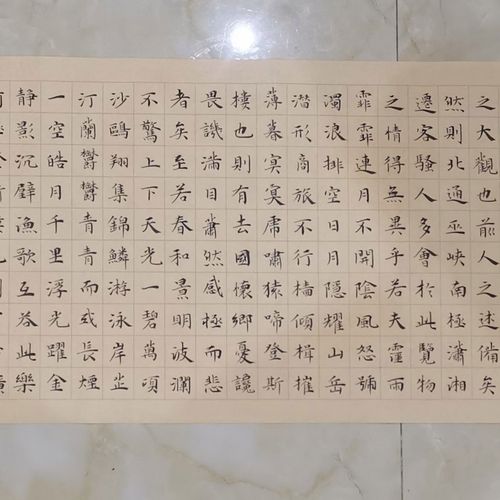 之大觀也前人之述備矣
然則北通巫峽南極瀟湘
遷客騷人多會於此覽物
之情得無異乎若夫霪雨
霏霏連月不開陰風怒號
濁浪排空日月隱耀山岳
潛形商旅不行檣傾楫摧
薄暮冥冥虎嘯猿啼登斯
樓也則有去國懷鄉憂讒
畏譏滿目蕭然感極而悲
者矣至若春和景明波瀾
不驚上下天光一碧萬頃
沙鷗翔集錦鱗游泳岸芷
汀蘭鬱鬱青青而或長煙
一空皓月千里浮光躍金
静影沉璧漁歌互答此樂